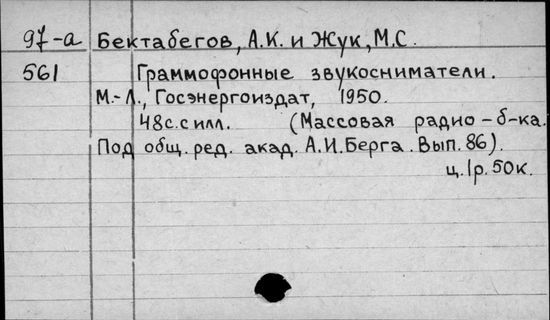 97-а Бектабегов, А.К. и Жук, М.С.
561 Граммофонные звукосниматели.
М.-Л., Госэнергоиздат, 1950.
48с. с илл. (Массовая радио-б-ка.
Под общ. ред. акад. А.И.Берга. Вып. 86).
ц. 1р. 50к.